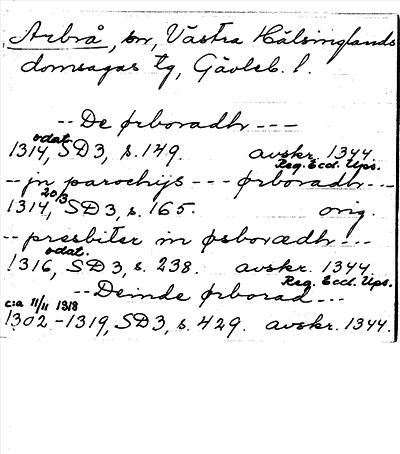 Arbrå, sn, Västra Hälsinglands
domsagas tg, Gävleb. l.
-- De ørboradhr ---
odat.
1314, SD 3, s. 149. avskr. 1344.
Reg. Eccl. Ups.
-- jn parochijs --- ørboradhr ---
20/3
1314, SD 3, s. 165. orig.
-- presbiter in øsborædhr ---
odat.
1316, SD 3, s. 238. avskr. 1344
Reg. Eccl. Ups.
-- Deinde ørborad ---
c:a 11/11 1318
1302-1319, SD 3, s. 429. avskr. 1344.